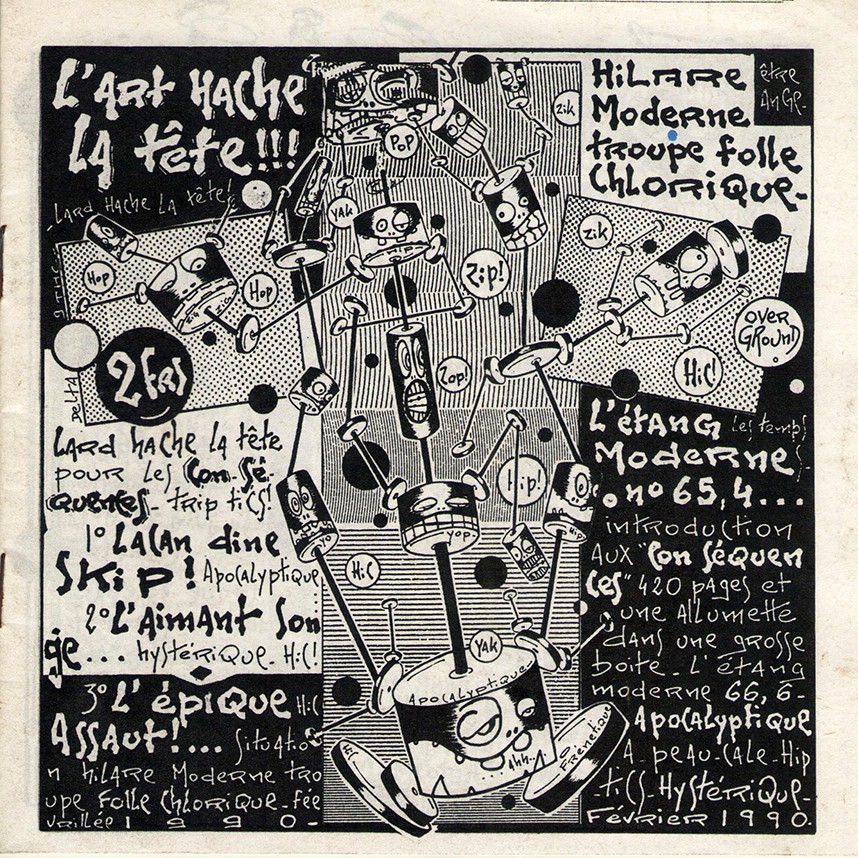 L'ART HACHE
LA tête!!!
LARD HACHE LA tête!
HOP
HOP
2 fRS
DELTA
LARD HACHE LA tête
POUR LES CON-Sé-
QUENCES- TRIP tiCS!
1° LACAN dine
SKiP! APOCALYPTIQUE
2° L'AIMANT SON
GE... HYSTÉRIQUE. HiC!
3° L'éPIQUE HiC
ASSAUT!... SITUATIO
N HILARE MODERNE TRO
UPE FOLLE CHLORIQUE-Fée
VRILLée 1990-
POP
YAK
HIP
ZIP!
ZOP!
HIP!
YOP
YO
HiC
YAK
APOCALYPTIQUE
...AHH..
FRÉNÉTIQUE
ZiK
ZiK
HiC!
OVER
GROUND
HILARE
MODERNE
TROUPE FOLLE
CHLORIQUE-
être
ANGE-
L'étANG Les temps
MODERNE
. no 65,4...
iNTRODUCTION
AUX "CON SéQUEN
CES" 420 PAGES et
UNE ALLUMETTE
DANS UNE GROSSE
BOITE. L'étANG
MODERNE 66,6-
APOCALYPTIQUE
A-PEAU-CALE-HiP
-TiCS-HYSTÉRIQUE-
FÉVRIER 1990.